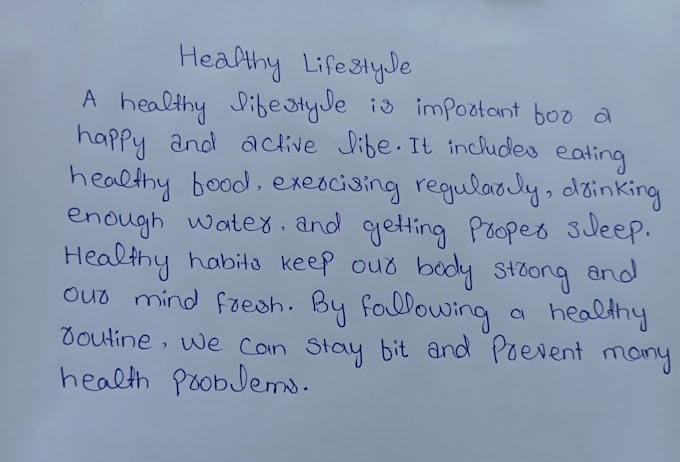 Healthy Lifestyle
A healthy lifestyle is important for a
happy and active life. It includes eating
healthy food, exercising regularly, drinking
enough water, and getting proper sleep.
Healthy habits keep our body strong and
our mind fresh. By following a healthy
routine, we can stay fit and prevent many
health problems.